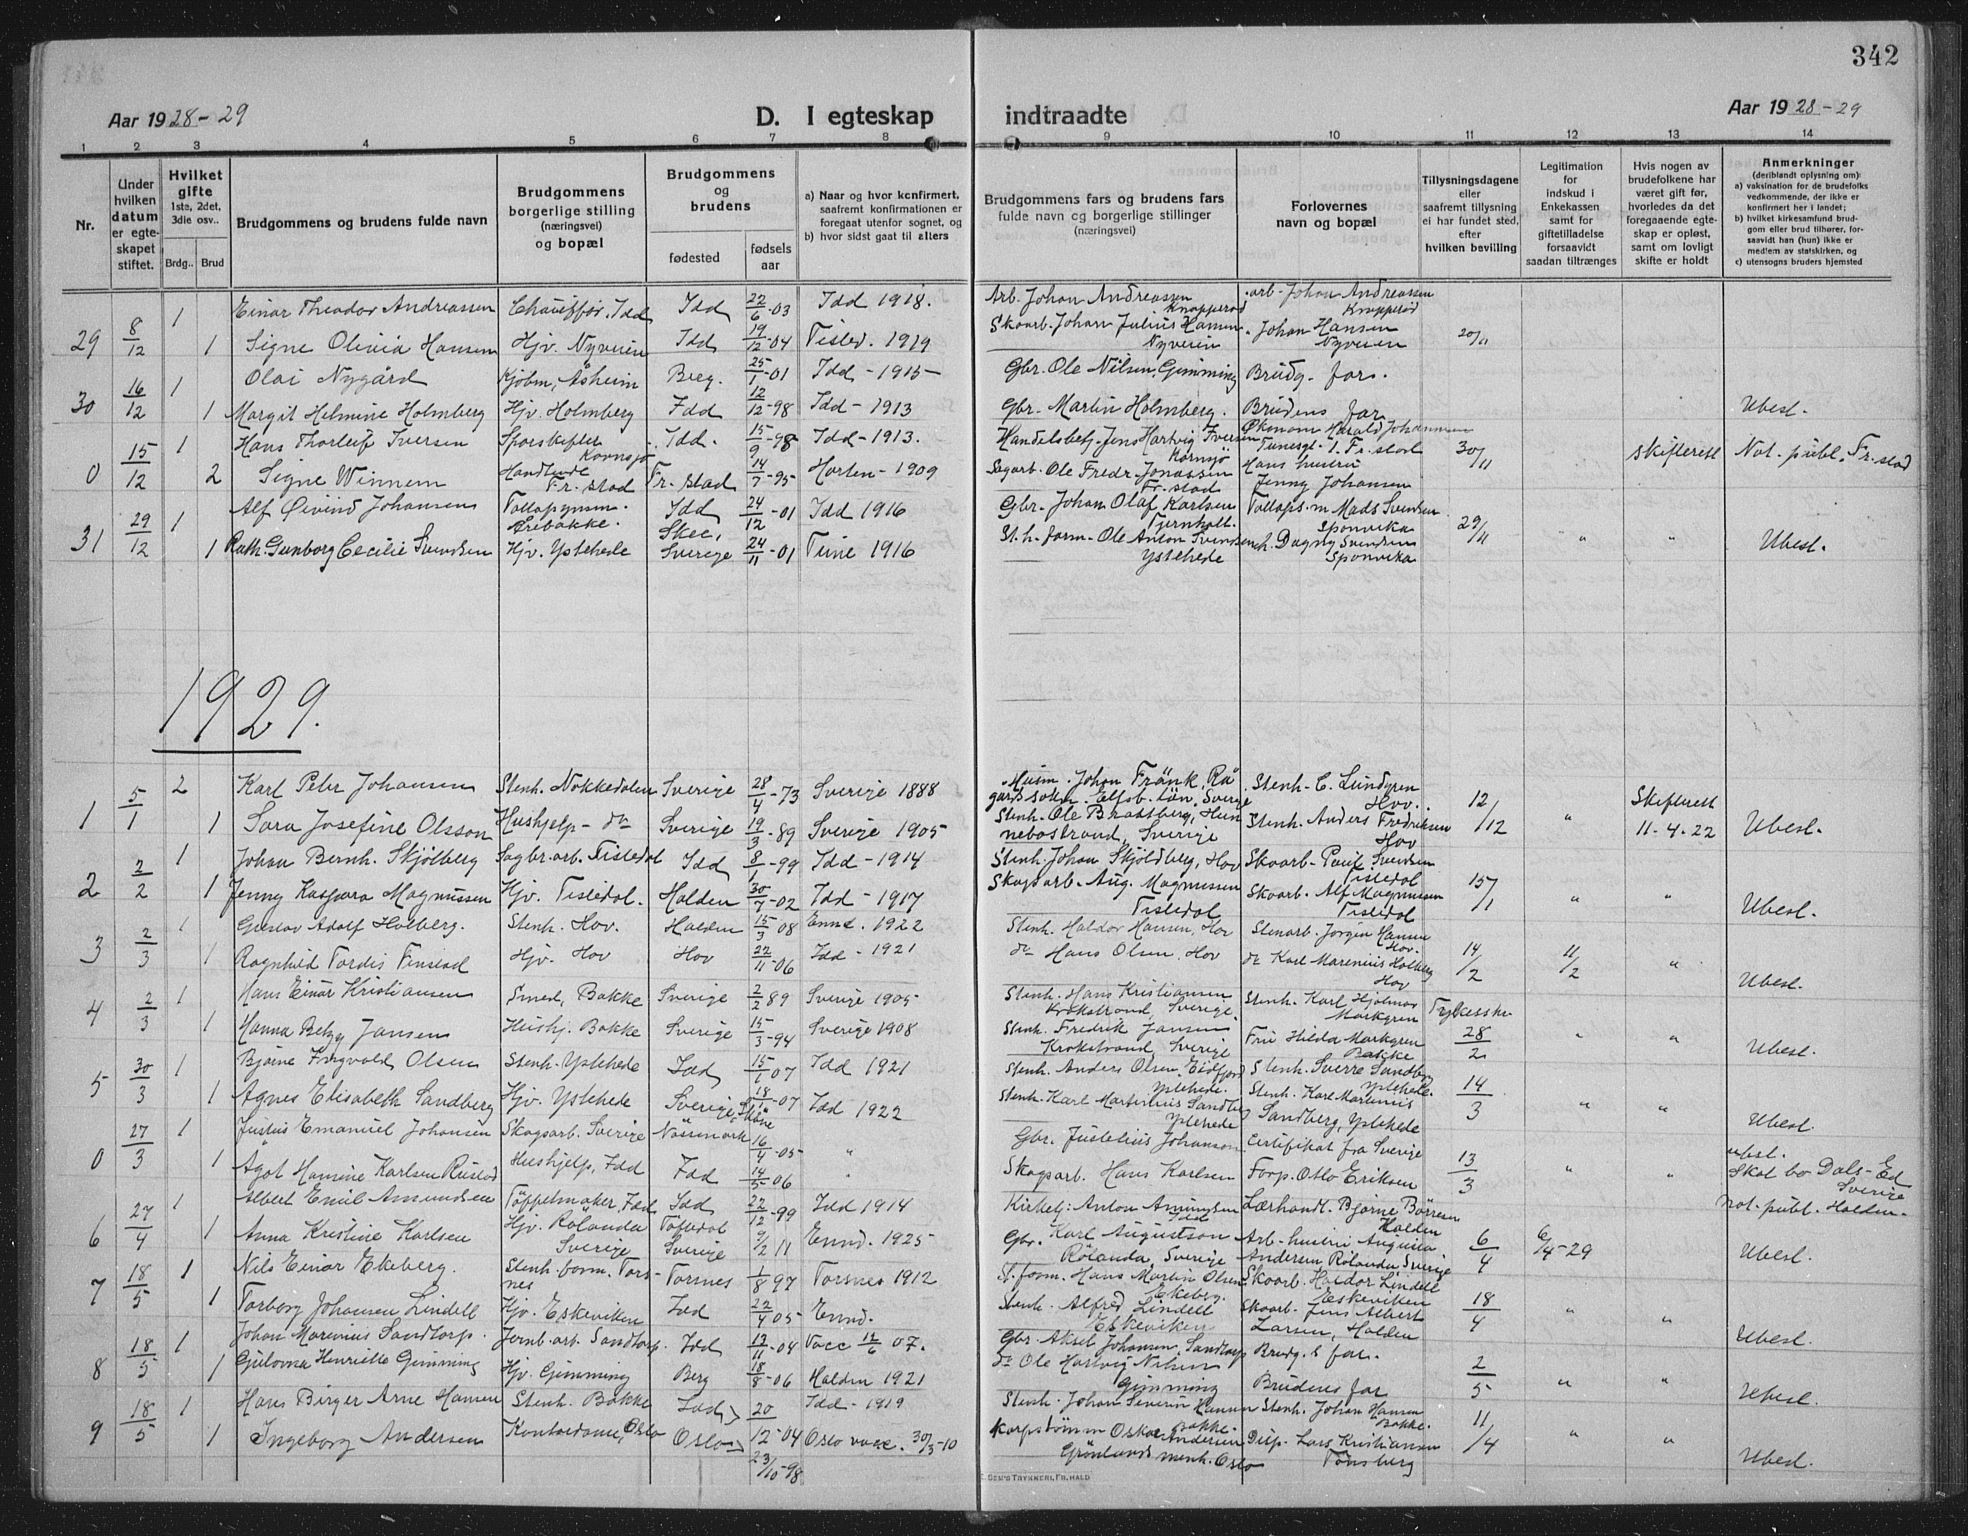 342
Aar 1928-29
D. I egteskap indtraadte
Aar 1928-29
1 2 3 4 5 6 7 8 9 10 11 12 13 14
Nr.
Under hvilken datum er egteskapet stiftet.
Hvilket gifte 1ste, 2det, 3die osv..
Brdg.. Brud
Brudgommens og brudens fulde navn
Brudgommens borgerlige stilling (næringsvei) og bopæl
Brudgommens og brudens
fødested
fødsels aar
a) Naar og hvor konfirmert, saafremt konfirmationen er foregaat utenfor sognet, og
b) hvor sidst gaat til alters
Brudgommens fars og brudens fars fulde navn og borgerlige stillinger (næringsvei)
Forlovernes navn og bopæl
Tillysningsdagene eller saafremt tillysning ei har fundet sted, efter hvilken bevilling
Legitimation for indskud i Enkekassen samt for giftetilladelse forsaavidt saadan tiltrænges
Hvis nogen av brudefolkene har været gift før, hvorledes da det foregaaende egteskap er opløst, samt om lovligt skifte er holdt
Anmerkninger (deriblandt oplysning om):
a) vaksination for de brudefolks vedkommende, der ikke er konfirmert her i landet;
b) hvilket kirkesamfund brudgom eller brud tilhører, forsaavidt han (hun) ikke er medlem av statskirken, og
c) utensogns bruders hjemsted
29 8/12 1 Einar Theodor Andreassen Chauffør, Idd Idd 22/6-03 Idd 1918. Arb. Johan Andreassen Knapperød arb. Johan Andreassen Knapperød
1 Signe Olivia Hansen Hjv. Nyveien Idd 19/12-04 Tisted. 1919 Skoarb. Johan Julius Hansen Nyveien Johan Hansen Nyveien 20/11
30 16/12 1 Olai Nygård Kjøbm, Åsheim Berg. 25/1-01 Idd - 1915 Gbr. Ole Nilsen, Gimming Brudg. far.
1 Margit Helmine Holmberg Hjv. Holmberg Idd 12/12-98 Idd - 1913 Gbr. Martin Holmberg. Brudens far Ubesl.
0 15/12 1 Hans Thorleif Iversen Sporskifter Kornsjø Idd. 15/9-98 Idd - 1913. Handelsbetj. Jens Hartvig Iversen Kornsjø Økonom Harald Johannesen Fr. stad 30/11 skifterett Not. publ. Fr. stad
2 Signe Winnem Fr. stad Fr. stad 14/7-95 Horten - 1909 Sagarb. Ole Fredr. Jonassen Fr. stad Hans hustru Jenny Johansen
31 29/12 1 Alf Øivind Johansen Idd 24/12-01 Idd 1916 Gbr. Johan Olaf Karlsen Tollops. m Mads Svendsen Sponvika 29/11
1 Ruth Gunborg Cecilie Svendsen Hjv. Ystehede Skee, Sverige 24/11-01 Tune 1916 St. h. form. Ole Anton Svendsen Ystehede Dagny Svendsen Sponvika " " Ubesl.
1929.
1 5/1 2 Karl Peter Johansen Stenh. Nokkedalen Sverige 28/4-73 Sverige 1888 Husm. Johan Fränk, Sverige Stenh. C. Lundgren Hov. 12/12 " Skifterett 11-4-22
1 Sara Josefine Olsson Hushjelp do Sverige 19/3-89 Sverige 1905 Stenh. Ole Brattberg, Hunnebostrand, Sverige Stenh. Anders Fredriksen Hov Ubesl.
2 2/2 1 Johan Bernh. Skjølberg Sagbr. arb. Tistedal Idd 8/1-99 Idd - 1914 Stenh. Johan Skjöldberg, Hov Skoarb. Paul Svendsen Tistedal 15/1 " "
1 Jenny Kaspara Magnussen Hjv. Tistedal. Halden 30/7-02 Idd - 1917 Skogsarb. Aug. Magnussen Tistedal Skoarb. Alf Magnussen Tistedal Ubesl.
3 2/3 1 Gustav Adolf Holberg. Stenh. Hov. Halden 15/3 08 Enn. 1922 Stenh. Haldor Hansen, Hov Stenarb. Jørgen Hansen Hov. 14/2 11/2 "
1 Ragnhild Tordis Finstad Hjv. Hov Hov 22/11-06 Idd - 1921 do Hans Olsen, Hov do Karl Marenius Holberg Hov Ubesl.
4 2/3 1 Hans Einar Kristiansen Smed, Bakke Sverige 2/2 89 Sverige 1905 Stenh. Hans Kristiansen Krokstrand, Sverige. Stenh. Karl Hjalmar Markgren 28/2 " "
1 Hanna Betzy Jansen Hushj. Bakke Sverige 15/3-94 Sverige 1908 Stenh. Fredrik Jansen Krokstrand, Sverige Fru Hilda Markgren Bakke Ubesl.
5 30/3 1 Bjarne Ingvald Olsen Stenh. Ystehede Idd 15/1 07 Idd 1921 Stenh. Anders Olsen, Eidfjord Ystehede. Stenh. Sverre Sandberg Ystehede. 14/3 " "
1 Agnes Elisabeth Sandberg Hjv. Ystehede Sverige, Skåne 18/1-07 Idd 1922 Stenh. Karl Martinius Sandberg Ystehede Stenh. Karl Marenius Sandberg, Ystehede Ubesl.
0 27/3 1 Justus Emanuel Johansen Skogsarb. Sverige Nössmark 16/4-05 " Gbr. Justelius Johanson Certifikat fra Sverige 13/3 " " ubesl.
1 Agot Hannine Karlsen Rustad Hushjelp, Idd Idd 14/5-06 " Skogsarb. Hans Karlsen Forp. Otto Eriksen Skal bo Dals-Ed Sverige
not. publ. Halden
6 27/4 1 Albert Emil Amundsen Tøffelmaker, Idd Idd 22/12-99 Idd 1914 Kirketj. Anton Amundsen Idd Lærhandl. Bjarne Børresen Halden 6/4 6/4-29
1 Anna Kristine Karlsen Hjv. Rölanda Sverige Töftedal Sverige 9/2 11 Ennd. 1925 Gbr. Karl Augustson Rölanda, Sverige Arb. hustru Augusta Andersen Rölanda Sverige Ubesl.
7 18/5 1 Nils Einar Ekeberg. Stenh. form. Torsnes Torsnes 1/8 97 Torsnes 1912 St. form. Hans Martin Olsen Ekeberg. Skoarb. Haldor Lindell Eskeviken 18/4 " "
1 Torborg Johansen Lindell Hjv. Eskeviken Idd 22/4 05 Ennd. Stenh. Alfred Lindell Eskeviken Skoarb. Jens Albert Larsen, Halden Ubesl.
8 18/5 1 Johan Marenius Sandtorp. Jernb. arb. Sandtorp. Idd 13/11-04 Vacc 12/6 07. Gbr. Aksel Johansen, Sandtorp Brudg.s far. 2/5 " "
1 Gulovna Henriette Gimming Hjv. Gimming Berg 18/8-06 Halden 1921 do Ole Hartvig Nilsen Gimming Brudens far Ubesl.
9 18/5 1 Hans Birger Arne Hansen Stenh. Bakke Idd 20/12-04 Idd - 1919 Stenh. Johan Severin Hansen Bakke. Stenh. Johan Hansen Bakke. 11/4 " "
1 Ingeborg Andersen Kontordame, Oslo Oslo 23/10-98 Oslo vacc. 30/3-10 Korpstömm Oskar Andersen Grönlands menh. Oslo Disp. Lars Kristiansen Tönsberg Ubesl.
SEM'S TRYKKERI, FR.HALD